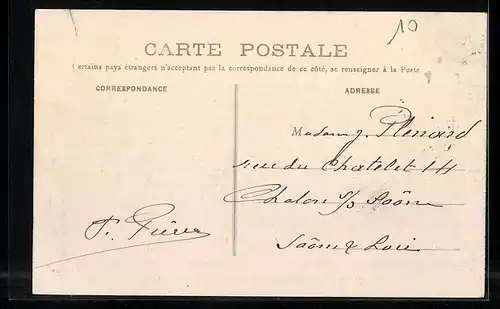 10
CARTE POSTALE
Certains pays étrangers n'acceptant pas la correspondance de ce côté, se renseigner à la Poste
CORRESPONDANCE
ADRESSE
Madame J.
rue du Chatelet 14
Chalon s/s Saône
Saône & Loire